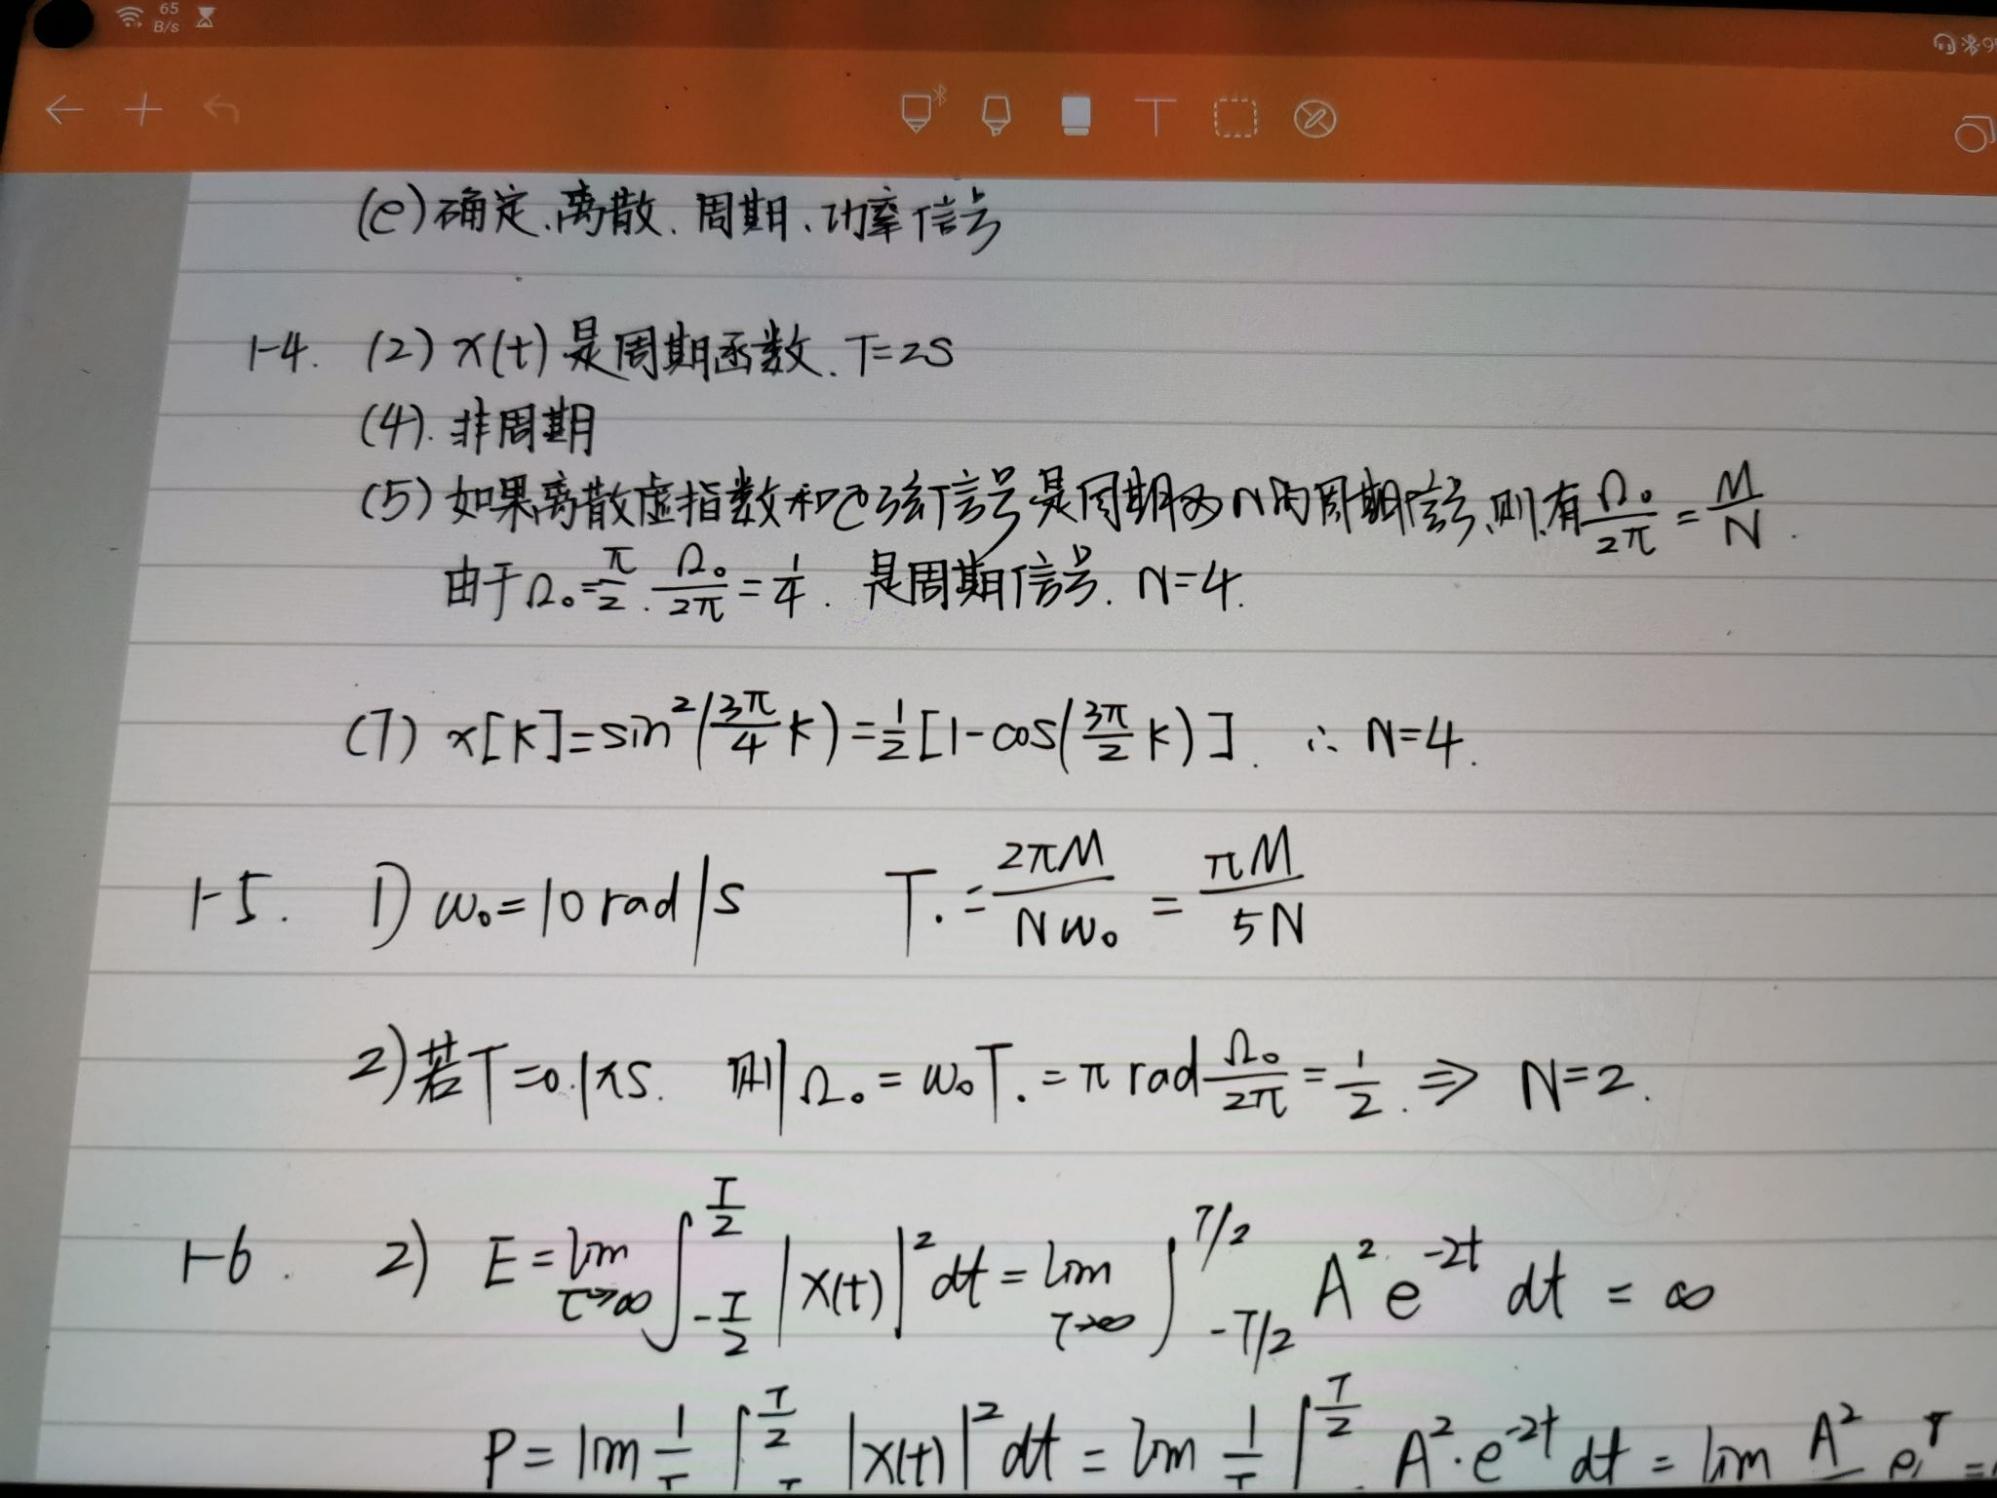 65
B/s
(e)确定、离散、周期、功率信号
1-4. (2) x(t)是周期函数. T=2S
(4). 非周期
(5) 如果离散虚指数和正弦信号是周期为N的周期信号,则有 Ω₀/2π = M/N.
由于Ω₀=π/2. Ω₀/2π = 1/4. 是周期信号. N=4.
(7) x[k]=sin²(3π/4 k)=1/2[1-cos(3π/2 k)]. ∴ N=4.
1-5. 1) ω₀=10rad/s T.=2πM/Nω₀ = πM/5N
2)若T=0.1πs. 则Ω₀=ω₀T.=π rad Ω₀/2π = 1/2. ⇒ N=2.
1-6. 2) E=lim T→∞ ∫_{-T/2}^{T/2} |x(t)|² dt = lim T→∞ ∫_{-T/2}^{T/2} A² e^{-2t} dt = ∞
P=lim 1/T ∫^{T/2} |x(t)|² dt = lim 1/T ∫^{T/2} A²·e^{-2t} dt = lim A² e^T =